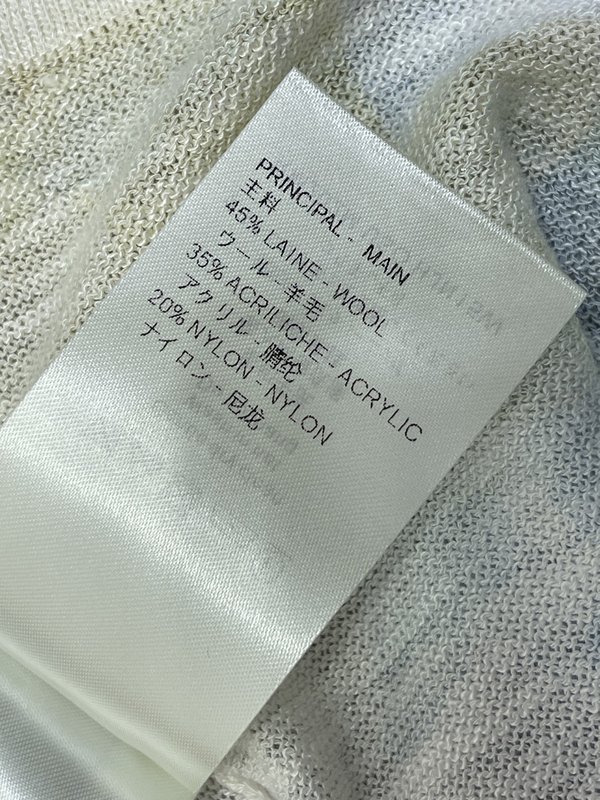 PRINCIPAL - MAIN
主料
45% LAINE - WOOL
ウール - 羊毛
35% ACRILICHE - ACRYLIC
アクリル - 腈纶
20% NYLON - NYLON
ナイロン - 尼龙